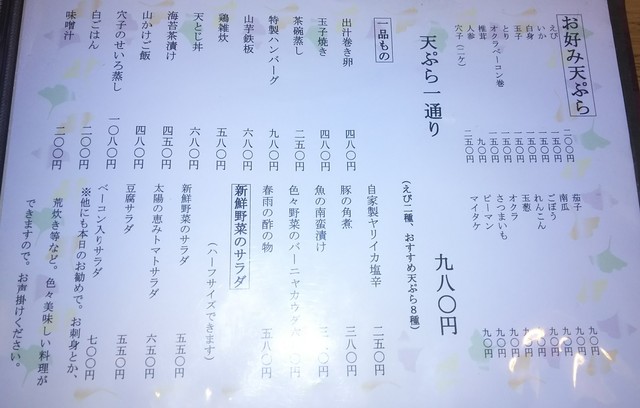 お好み天ぷら
えび 二〇〇円
いか 一五〇円
白身 一五〇円
玉子 一五〇円
とり 一五〇円
オクラベーコン巻 一五〇円
椎茸
人参 九〇円
穴子(二ケ) 二五〇円
茄子 九〇円
南瓜 九〇円
ごぼう 九〇円
れんこん 九〇円
玉葱 九〇円
オクラ 九〇円
さつまいも 九〇円
ピーマン 九〇円
マイタケ 九〇円
天ぷら一通り 九八〇円
(えび二種、おすすめ天ぷら8種)
一品もの
出汁巻き卵 四八〇円
玉子焼き 四八〇円
茶碗蒸し 二五〇円
特製ハンバーグ 九八〇円
山芋鉄板 六八〇円
鶏雑炊 五八〇円
天とじ丼 六八〇円
海苔茶漬け 四五〇円
山かけご飯 四八〇円
穴子のせいろ蒸し 一〇八〇円
白ごはん 二〇〇円
味噌汁 二〇〇円
自家製ヤリイカ塩辛 二五〇円
豚の角煮 三八〇円
魚の南蛮漬け
色々野菜のバーニャカウダ
春雨の酢の物
新鮮野菜のサラダ
(ハーフサイズできます)
新鮮野菜のサラダ 五五〇円
太陽の恵みトマトサラダ 六五〇円
豆腐サラダ 五五〇円
ベーコン入りサラダ 七〇〇円
※他にも本日のお勧めで。お刺身とか、
荒炊き等など。色々美味しい料理が
できますので。お声掛けください。